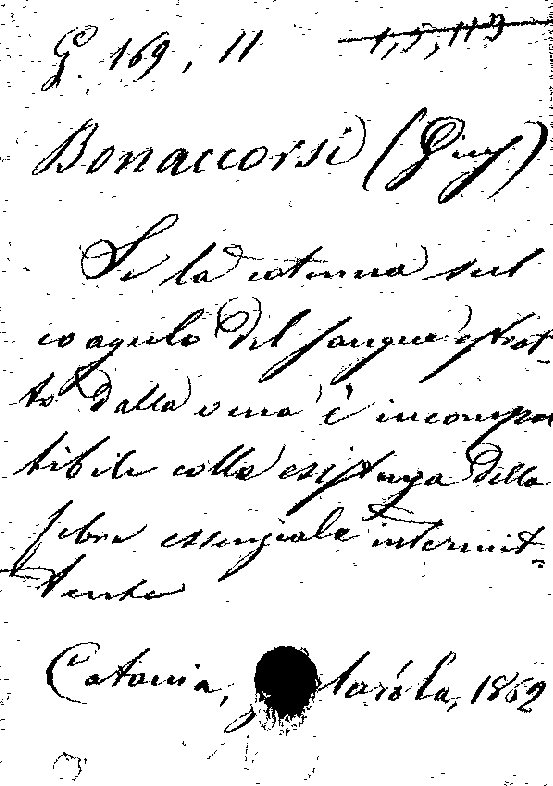 G. 169, 11 1, 5, 113
Bonaccorsi (Gius)
Se la cotenna sul
coagulo del sangue estrat-
to dalla vena è incompa
tibile colla esistenza della
febre essenziale intermit-
tente
Catania, 1862